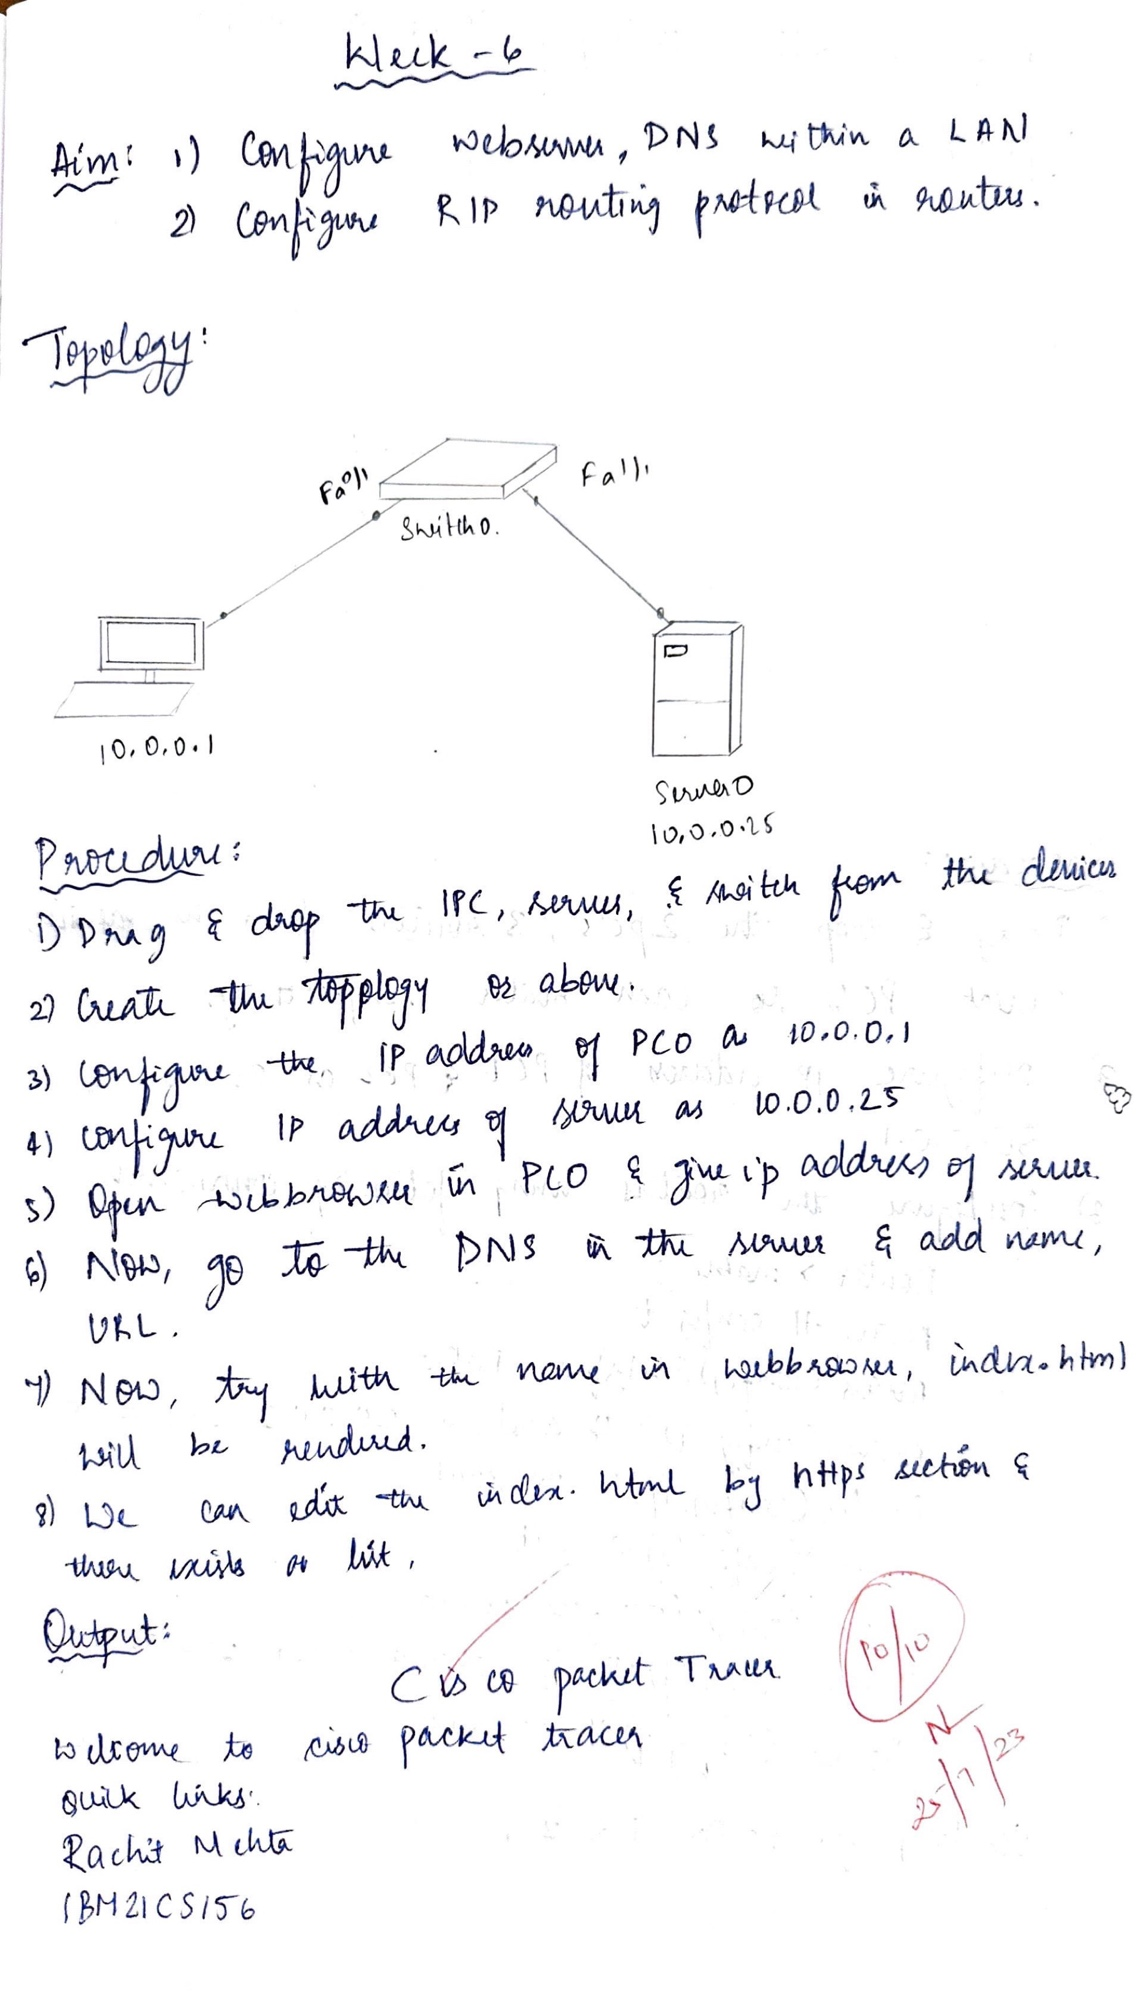 Week - 6
Aim: 1) Configure webserver, DNS within a LAN
2) Configure RIP routing protocol in routers.
Topology:
Fa0/1
Fa1/1
Switch0.
10.0.0.1
Server0
10.0.0.25
Procedure:
1) Drag & drop the 1PC, server, & switch from the devices
2) Create the topplogy as above.
3) Configure the IP address of PC0 as 10.0.0.1
4) Configure IP address of server as 10.0.0.25
5) Open webbrowser in PC0 & give ip address of server.
6) Now, go to the DNS in the server & add name,
URL.
7) Now, try with the name in webbrowser, index.html
will be rendered.
8) We can edit the index.html by https section &
there exists a list.
Output:
Cisco packet Tracer
10/10
Welcome to cisco packet tracer
N
25/7/23
Quick links:
Rachit Mehta
1BM21CS156